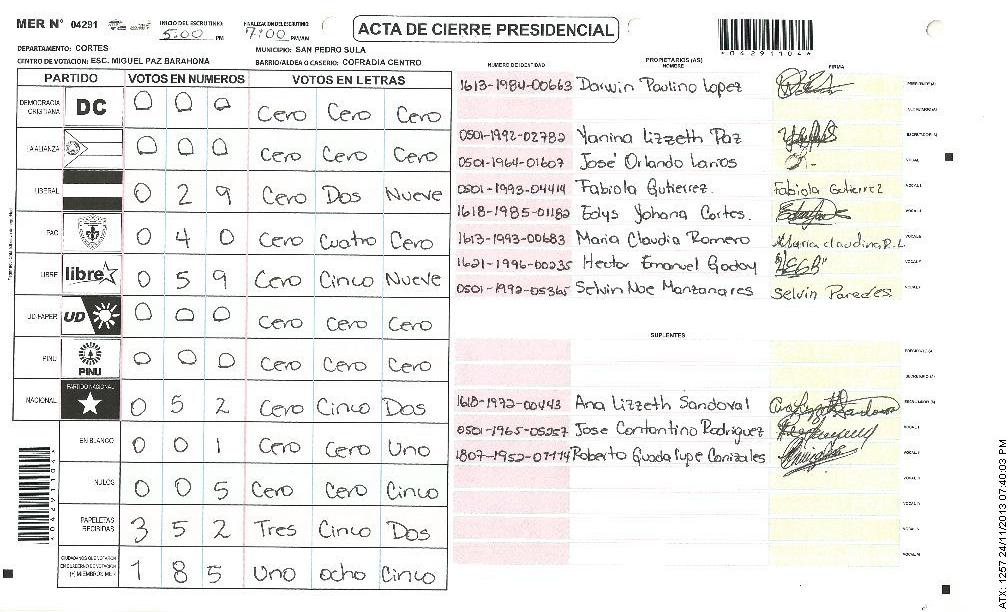 MER N° 04291
INICIO DEL ESCRUTINIO: 5:00 PM
FINALIZACION DEL ESCRUTINIO: 7:00 PM/AM
ACTA DE CIERRE PRESIDENCIAL
*04291104*
DEPARTAMENTO: CORTES
MUNICIPIO: SAN PEDRO SULA
CENTRO DE VOTACION: ESC. MIGUEL PAZ BARAHONA
BARRIO/ALDEA O CASERIO: COFRADIA CENTRO
PARTIDO VOTOS EN NUMEROS VOTOS EN LETRAS
DEMOCRACIA CRISTIANA DC 0 0 0 Cero Cero Cero
LA ALIANZA 0 0 0 Cero Cero Cero
LIBERAL 0 2 9 Cero Dos Nueve
PAC 0 4 0 Cero Cuatro Cero
LIBRE libre 0 5 9 Cero Cinco Nueve
UD-FAPER UD 0 0 0 Cero Cero Cero
PINU PINU 0 0 0 Cero Cero Cero
NACIONAL PARTIDO NACIONAL 0 5 2 Cero Cinco Dos
EN BLANCO 0 0 1 Cero Cero Uno
NULOS 0 0 5 Cero Cero Cinco
PAPELETAS RECIBIDAS 3 5 2 Tres Cinco Dos
CIUDADANOS QUE VOTARON EN CUADERNO DE VOTACION (+) MIEMBROS MER 1 8 5 Uno ocho Cinco
PROPIETARIOS (AS)
NUMERO DE IDENTIDAD NOMBRE FIRMA
1613-1984-00663 Darwin Paulino Lopez PRESIDENTE (A)
0501-1992-02782 Yanina Lizzeth Paz SECRETARIO (A)
0501-1964-01607 José Orlando Larios VOCAL
0501-1993-04414 Fabiola Gutierrez. Fabiola Gutierrez VOCAL I
1618-1985-01182 Edys Yohana Cortes.
1613-1993-00683 Maria Claudia Romero Maria claudina R.L
1621-1996-00235 Hector Emanuel Godoy "HEGR"
0501-1992-05365 Selvin Noe Manzanares Selvin Paredes.
SUPLENTES
PRESIDENTE (A)
SECRETARIO (A)
1618-1972-00443 Ana Lizzeth Sandoval ESCRUTADOR (A)
0501-1965-05257 Jose Contantino Rodriguez
1807-1952-01114 Roberto Guadalupe Canizales
*04291104*
ATX: 1257 24/11/2013 07:40:03 PM